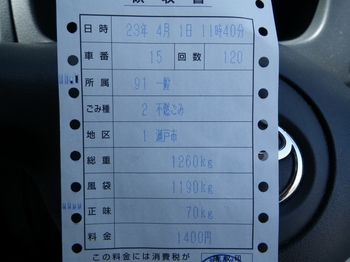 領収書
日時 23年 4月 1日 11時40分
車番 15 回数 120
所属 91 一般
ごみ種 2 不燃ごみ
地区 1 瀬戸市
総重 1260kg
風袋 1190kg
正味 70kg
料金 1400円
この料金には消費税が